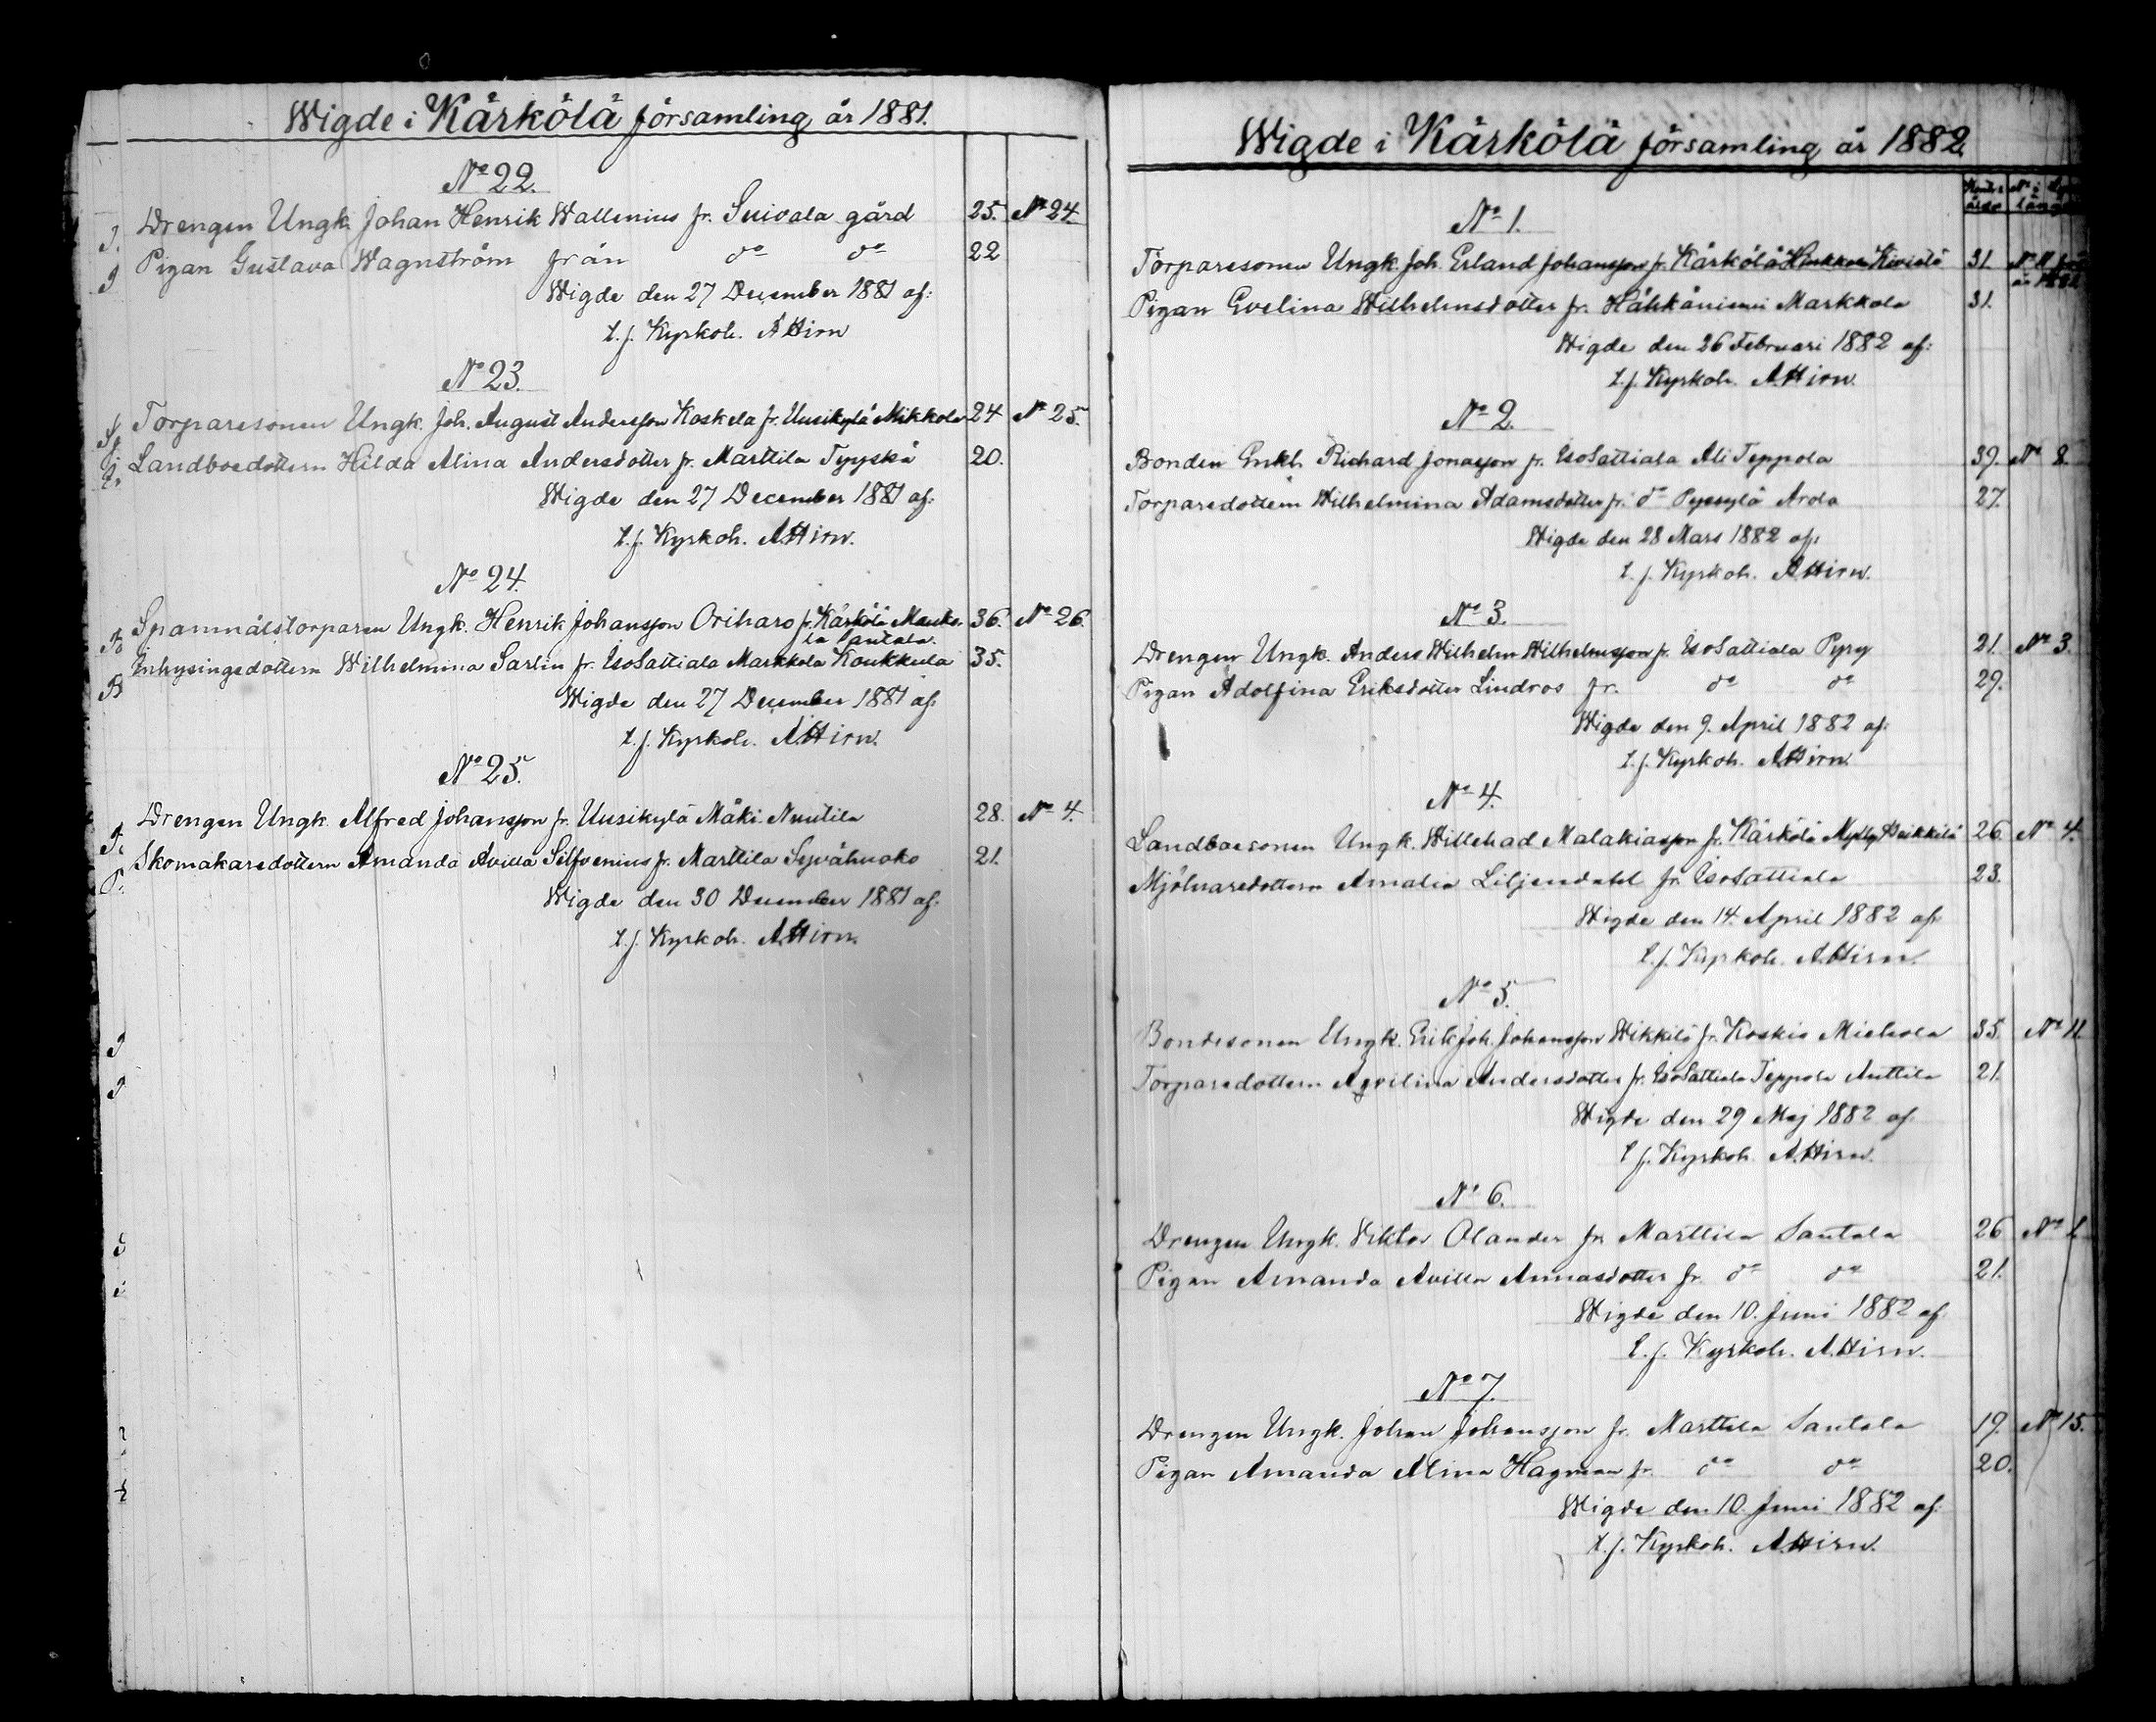 Wigde i Kärkölä församling år 1881.
No 22.
Drengen Ungk. Johan Henrik Wallenius fr. Suivala gård 25. No 24.
Pigan Gustava Wagnström från do do 22
Wigde den 27 December 1881 af:
t.f. Kyrkoh. A Hirn
No 23.
Torparesonen Ungk. Joh. August Andersson Koskela fr. Uusikylä Mikkola 24 No 25.
Landboedottern Hilda Alina Andersdotter fr. Marttila Typpskä 20.
Wigde den 27 December 1881 af:
t.f. Kyrkoh. A. Hirn.
No 24.
Spanmålstorparen Ungk. Henrik Johansson Oriharo fr. Kärkölä Mauko- 36. No 26.
la Santala.
Inhysingedottern Wilhelmina Sarlin fr. IsoSattiala Markkola Koukkula 35.
Wigde den 27 December 1881 af:
t.f. Kyrkoh. A. Hirn.
No 25.
Drengen Ungk. Alfred Johansson fr. Uusikylä Mäki-Nuutila 28. No 4.
Skomakaredottern Amanda Avilla Silfvenius fr. Marttila Syvähuoko 21.
Wigde den 30 December 1881 af:
t.f. Kyrkoh. A. Hirn.
Wigde i Kärkölä församling år 1882.
No 1.
Torparesonen Ungk. Joh. Erland Johansson fr. Kärkölä Hinkkala Kivistö 31. No 11
år 1881
Pigan Evelina Wilhelmsdotter fr. Hähkäniemi Markkola 31.
Wigde den 26 Februari 1882 af:
t.f. Kyrkoh. A. Hirn.
No 2.
Bonden Enkl. Richard Jonasson fr. IsoSattiala Ali Teppola 39. No 8.
Torparedottern Wilhelmina Adamsdotter fr. do Pyssylä Arola 27.
Wigde den 28 Mars 1882 af:
t.f. Kyrkoh. A. Hirn.
No 3.
Drengen Ungk. Anders Wilhelm Wilhelmsson fr. IsoSattiala Pyry 21. No 3.
Pigan Adolfina Eriksdotter Lindros fr. do do 29.
Wigde den 9. April 1882 af:
t.f. Kyrkoh. A. Hirn.
No 4.
Landboesonen Ungk. Willehad Malakiasson fr. Kärkölä Mylly Heikkilä 26. No 4.
Mjölnaredottern Amalia Liljendahl fr. IsoSattiala 23.
Wigde den 14. April 1882 af:
t.f. Kyrkoh. A. Hirn.
No 5.
Bondesonen Ungk. Erik Joh. Johansson Wikkilä fr. Koskis Miehola 35. No 11.
Torparedottern Aqvilina Andersdotter fr. IsoSattiala Teppola Anttila 21.
Wigde den 29 Maj 1882 af:
t.f. Kyrkoh. A. Hirn.
No 6.
Drengen Ungk. Viktor Olander fr. Marttila Santala 26 No
Pigan Amanda Avilla Annasdotter fr. do do 21.
Wigde den 10. Juni 1882 af:
t.f. Kyrkoh. A. Hirn.
No 7.
Drengen Ungk. Johan Johansson fr. Marttila Santala 19. No 15.
Pigan Amanda Alina Hagman fr. do do 20.
Wigde den 10. Juni 1882 af:
t.f. Kyrkoh. A. Hirn.